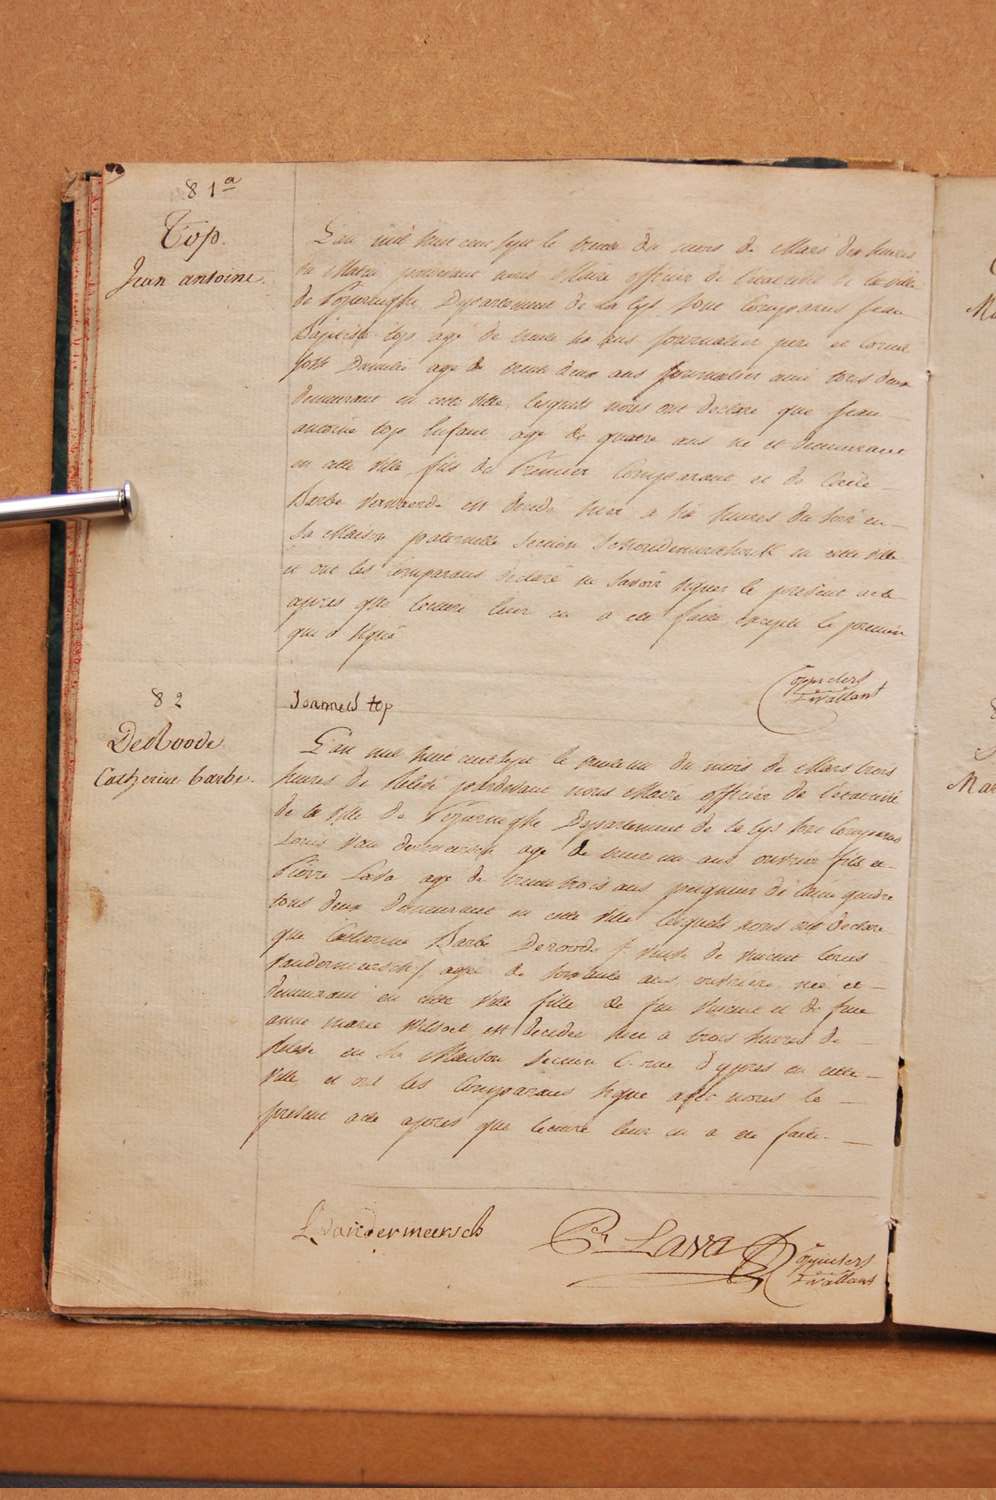 81a
Top.
Jean antoine.
L'an mil huit cent sept le du mois de Mars dix heures
du Matin pardevant nous Maire officier de l'etat civil de la ville
de Poperinghe Departement de la Lys sont Comparus Jean
Baptiste top agé de trente ans journalier pere et Corneil
agé de trente deux ans journalier ami tous deux
demeurant en cette ville, lesquels nous ont declare que Jean
antoine top Enfant agé de quatre ans né et demeurant
en cette ville fils du Premier Comparant et de Cecile
Barbe est decedé hier a six heures du soir en
sa Maison paternelle Section en cette ville
et ont les Comparans declaré ne savoir signer le present acte
apres que lecture leur en a ete faite excepte le premier
qui a signé
Joannes top
82
DeRoode
Catherine barbe.
L'an mil huit cent sept le du mois de Mars trois
heures de Relevé pardevant nous Maire officier de l'etat civil
de la ville de Poperinghe Departement de la Lys sont Comparus
Louis Van dermeersch agé de ans ouvrier fils et
Pierre Lava agé de trente trois ans peigneur de laine
tous deux demeurant en cette ville lesquels nous ont declare
que Catherine Barbe Deroode / veuve de vincent Louis
Vandermeersch / agée de soixante ans, ouvriere, née et
demeurant en cette ville fille de feu vincent et de feue
anne marie est decedée hier a trois heures de
Relevé en sa Maison Section C. rue d'ypres en cette
ville et ont les Comparans signé avec nous le
present acte apres que lecture leur en a ete faite.
L Vandermeersch
Pr Lava